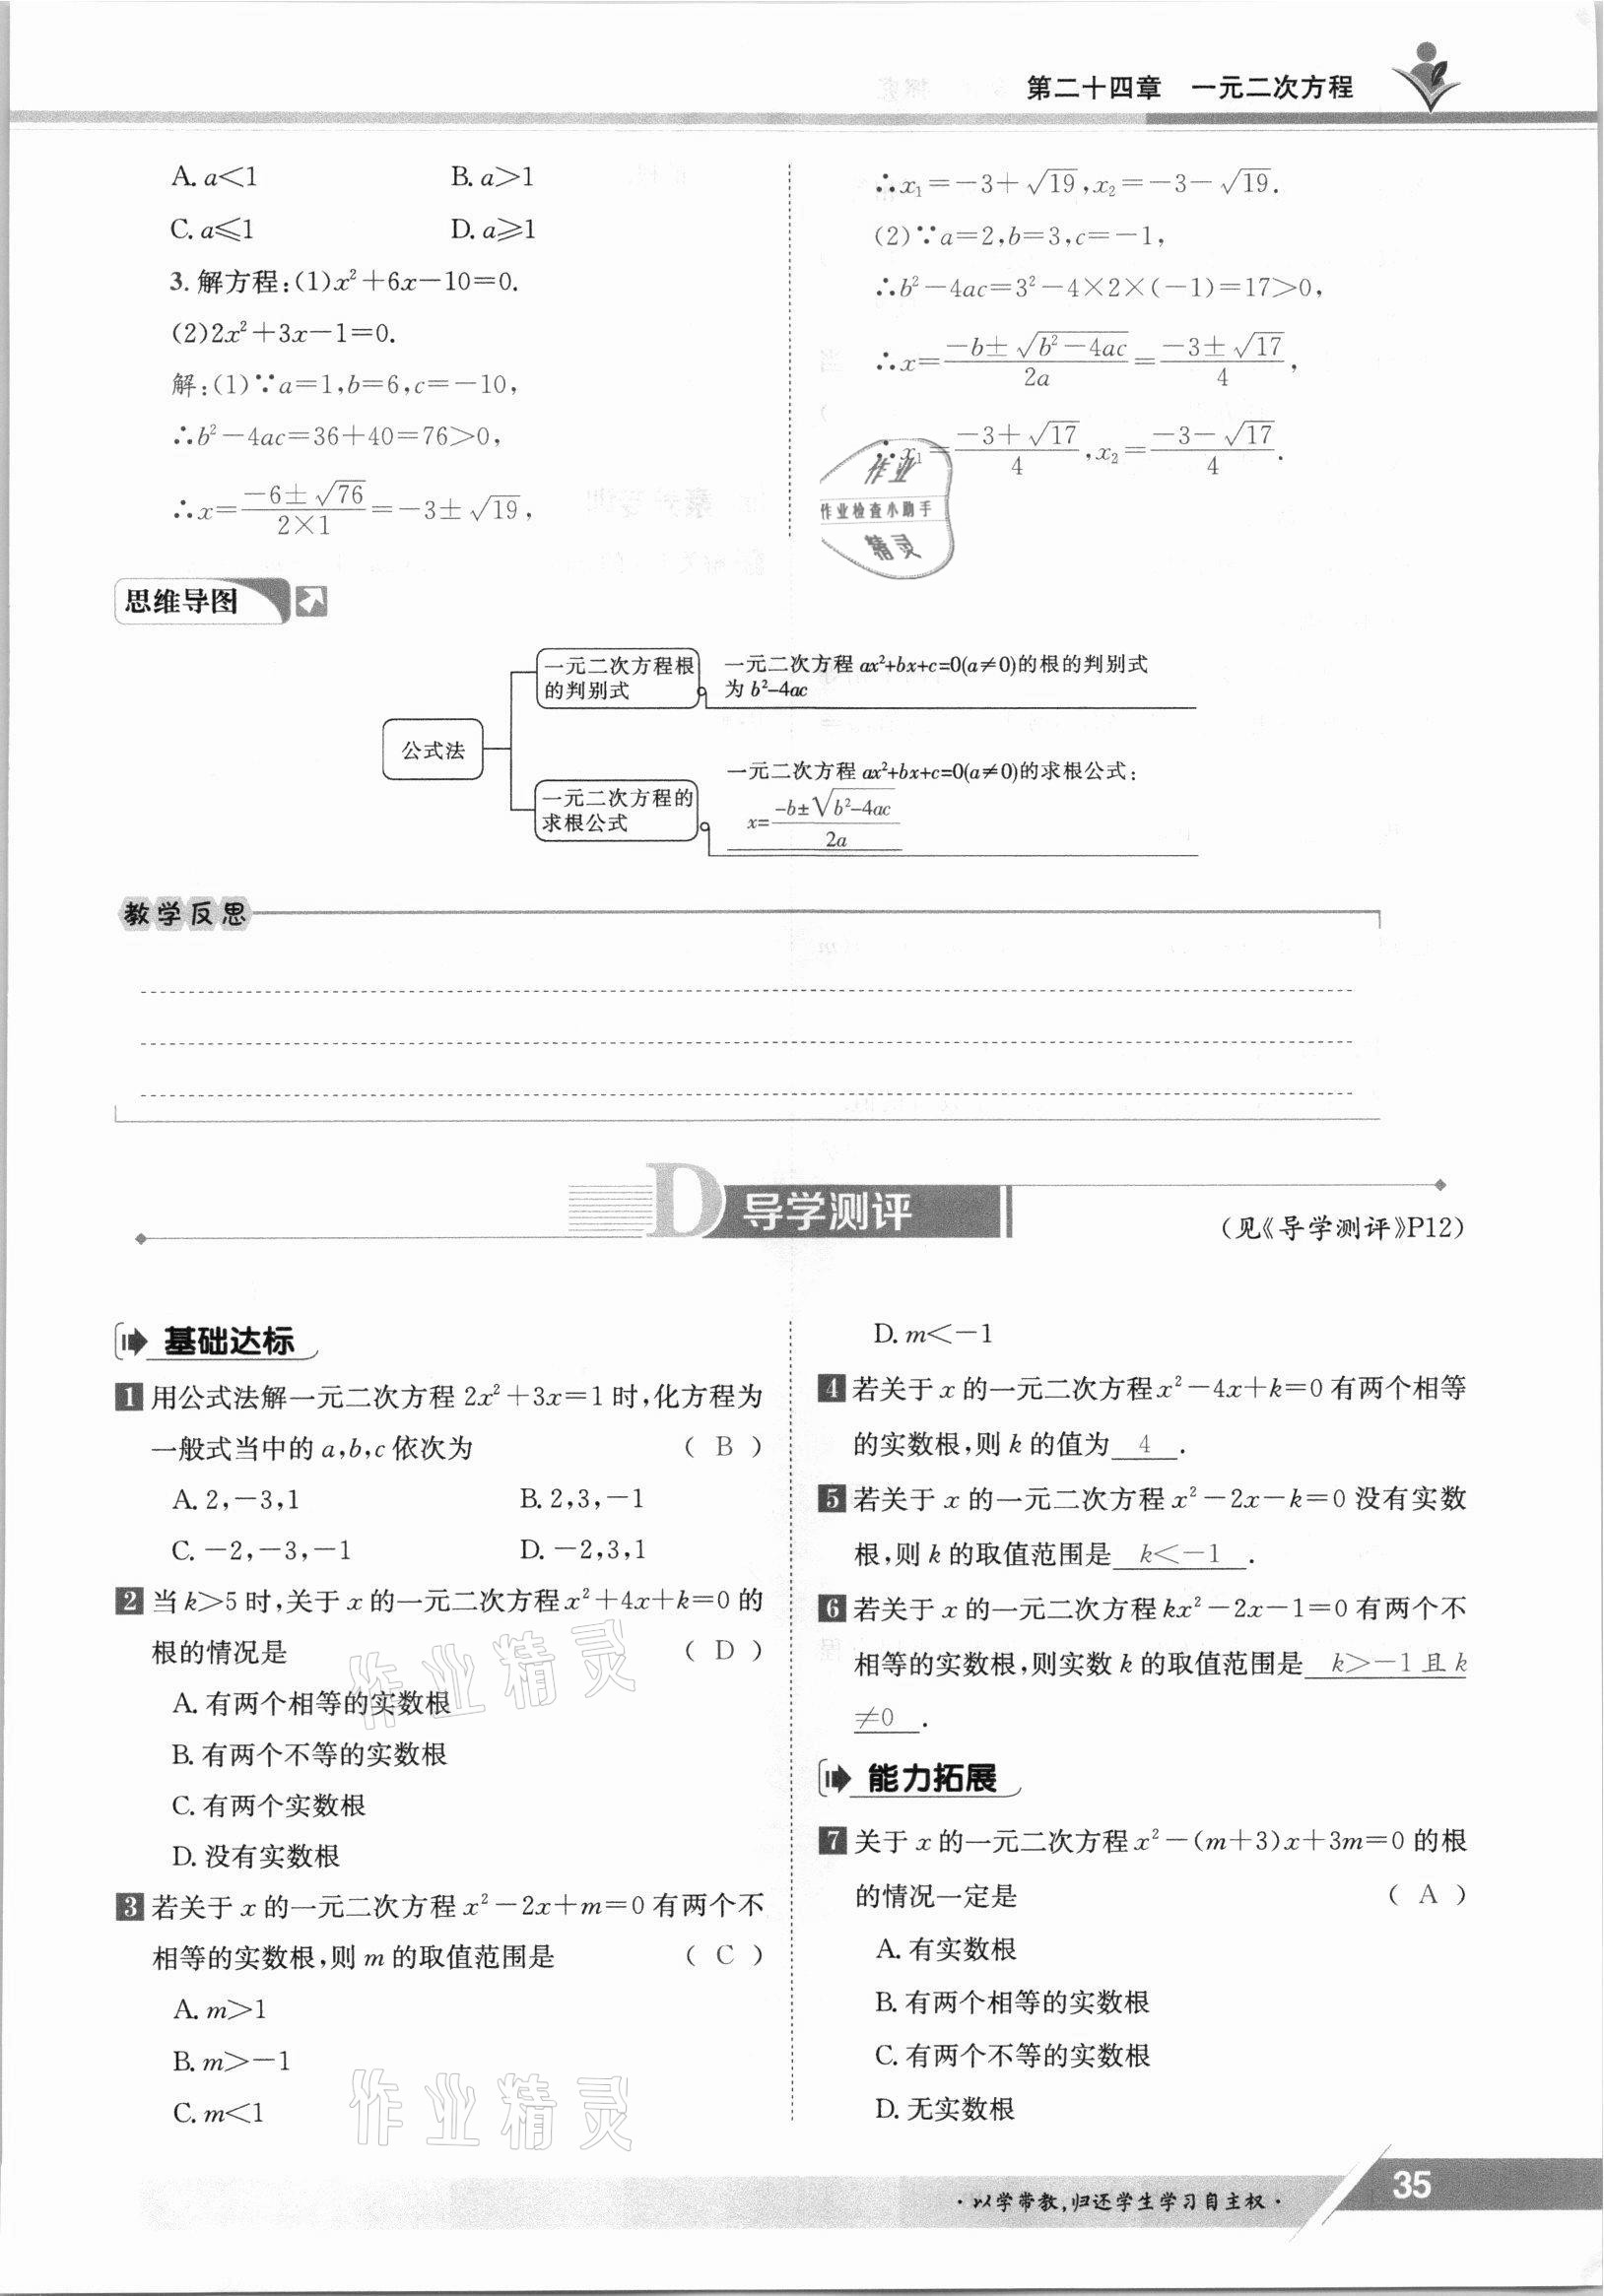 第二十四章　一元二次方程
A. a<1　B. a>1
C. a⩽1　D. a⩾1
3. 解方程:(1)x²+6x-10=0.
(2)2x²+3x-1=0.
解:(1)∵a=1,b=6,c=-10,
∴b²-4ac=36+40=76>0,
∴x=(-6±√76)/(2×1)=-3±√19,
∴x₁=-3+√19,x₂=-3-√19.
(2)∵a=2,b=3,c=-1,
∴b²-4ac=3²-4×2×(-1)=17>0,
∴x=(-b±√(b²-4ac))/(2a)=(-3±√17)/4,
∴x₁=(-3+√17)/4,x₂=(-3-√17)/4.
作业
作业检查小助手
精灵
思维导图
公式法
一元二次方程根
的判别式
一元二次方程 ax²+bx+c=0(a≠0)的根的判别式
为 b²-4ac
一元二次方程的
求根公式
一元二次方程 ax²+bx+c=0(a≠0)的求根公式:
x=(-b±√(b²-4ac))/(2a)
教学反思
D 导学测评
(见《导学测评》P12)
基础达标
1 用公式法解一元二次方程 2x²+3x=1 时,化方程为
一般式当中的 a,b,c 依次为　( B )
A. 2,-3,1　B. 2,3,-1
C. -2,-3,-1　D. -2,3,1
2 当 k>5 时,关于 x 的一元二次方程 x²+4x+k=0 的
根的情况是　( D )
A. 有两个相等的实数根
B. 有两个不等的实数根
C. 有两个实数根
D. 没有实数根
3 若关于 x 的一元二次方程 x²-2x+m=0 有两个不
相等的实数根,则 m 的取值范围是　( C )
A. m>1
B. m>-1
C. m<1
D. m<-1
4 若关于 x 的一元二次方程 x²-4x+k=0 有两个相等
的实数根,则 k 的值为 4 .
5 若关于 x 的一元二次方程 x²-2x-k=0 没有实数
根,则 k 的取值范围是 k<-1 .
6 若关于 x 的一元二次方程 kx²-2x-1=0 有两个不
相等的实数根,则实数 k 的取值范围是 k>-1 且 k
≠0 .
能力拓展
7 关于 x 的一元二次方程 x²-(m+3)x+3m=0 的根
的情况一定是　( A )
A. 有实数根
B. 有两个相等的实数根
C. 有两个不等的实数根
D. 无实数根
作业精灵
作业精灵
·以学带教,归还学生学习自主权·
35